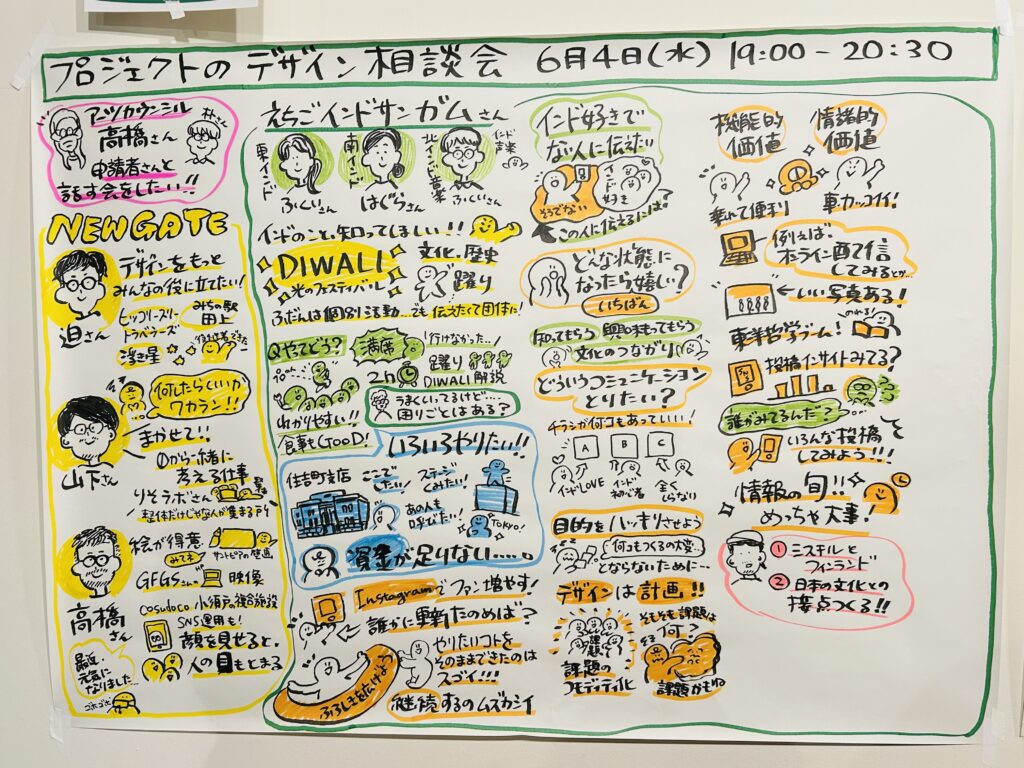 プロジェクトの デザイン 相談会 6月4日(水) 19:00-20:30
アーツカウンシル
高橋さん
申請者さんと
話す会をしたい!!
NEWGATE
デザインをもっと
みんなの役に立てたい!
ヒッコリースリー
トラベラーズ
みちの駅
田上
迫さん
何したらいいか
ワカラン!!
まかせて!!
0から一緒に
考える仕事
山下さん
りそラボさん
整体だけじゃなく人が集まる所
絵が得意
みてネ
GFGSさん
映像
高橋さん
cosudoco 小須戸の複合施設
SNS運用も!
顔を見せると、
人の目もとまる
最近、
元気に
なりました…
ゴホゴホ
えちごインドサンガムさん
東インド
ふくいさん
南インド
はぐらさん
北インド音楽
さん
インド
声楽
インドのこと、知ってほしい!!
DIWALI
光のフェスティバル
文化、歴史
踊り
ふだんは個別活動…でも伝えたくて団体に!
Qやってどう?
満席
行けなかった…!
2h
踊り
DIWALI解説
わかりやすい!!
食事もGOOD!
うまくいってるけど…
困りごとはある?
いろいろやりたい!!
住吉町支店
ここで
したい!
ステージ
くみたい!
あの人も
呼びたい!
TOKYO!
資金が足りない……。
Instagramでファン増やす!
誰かに頼めば?
やりたいコトを
そのままできたのは
スゴイ!!!
ふろしきを広げよう
継続するのムズカシイ
インド好きで
ない人に伝えたい
そうでない
インド
好き
この人に伝えるには?
どんな状態に
なったら嬉しい?
いちばん
知ってもらう 興味持ってもらう
文化のつながり
どういうコミュニケーション
とりたい?
チラシが何コもあっていい!
A B C
インドLOVE
インド
初心者
全く
しらない
目的をハッキリさせよう
何コもつくるの大変…
とならないために…
デザインは計画!!
課題の
コモディティ化
そもそも課題は
何?
課題かもね
機能的
価値
情緒的
価値
乗れて便利
車カッコイイ!
例えば、
オンライン配信
してみるとか…
←いい写真ある!
東洋哲学ブーム!
のれる!
投稿インサイトみてる?
誰がみてるんだ?
いろんな投稿
してみよう!!!
情報の旬!!
めっちゃ大事!
① ミステルと
フィンランド
② 日本の文化との
接点つくる!!